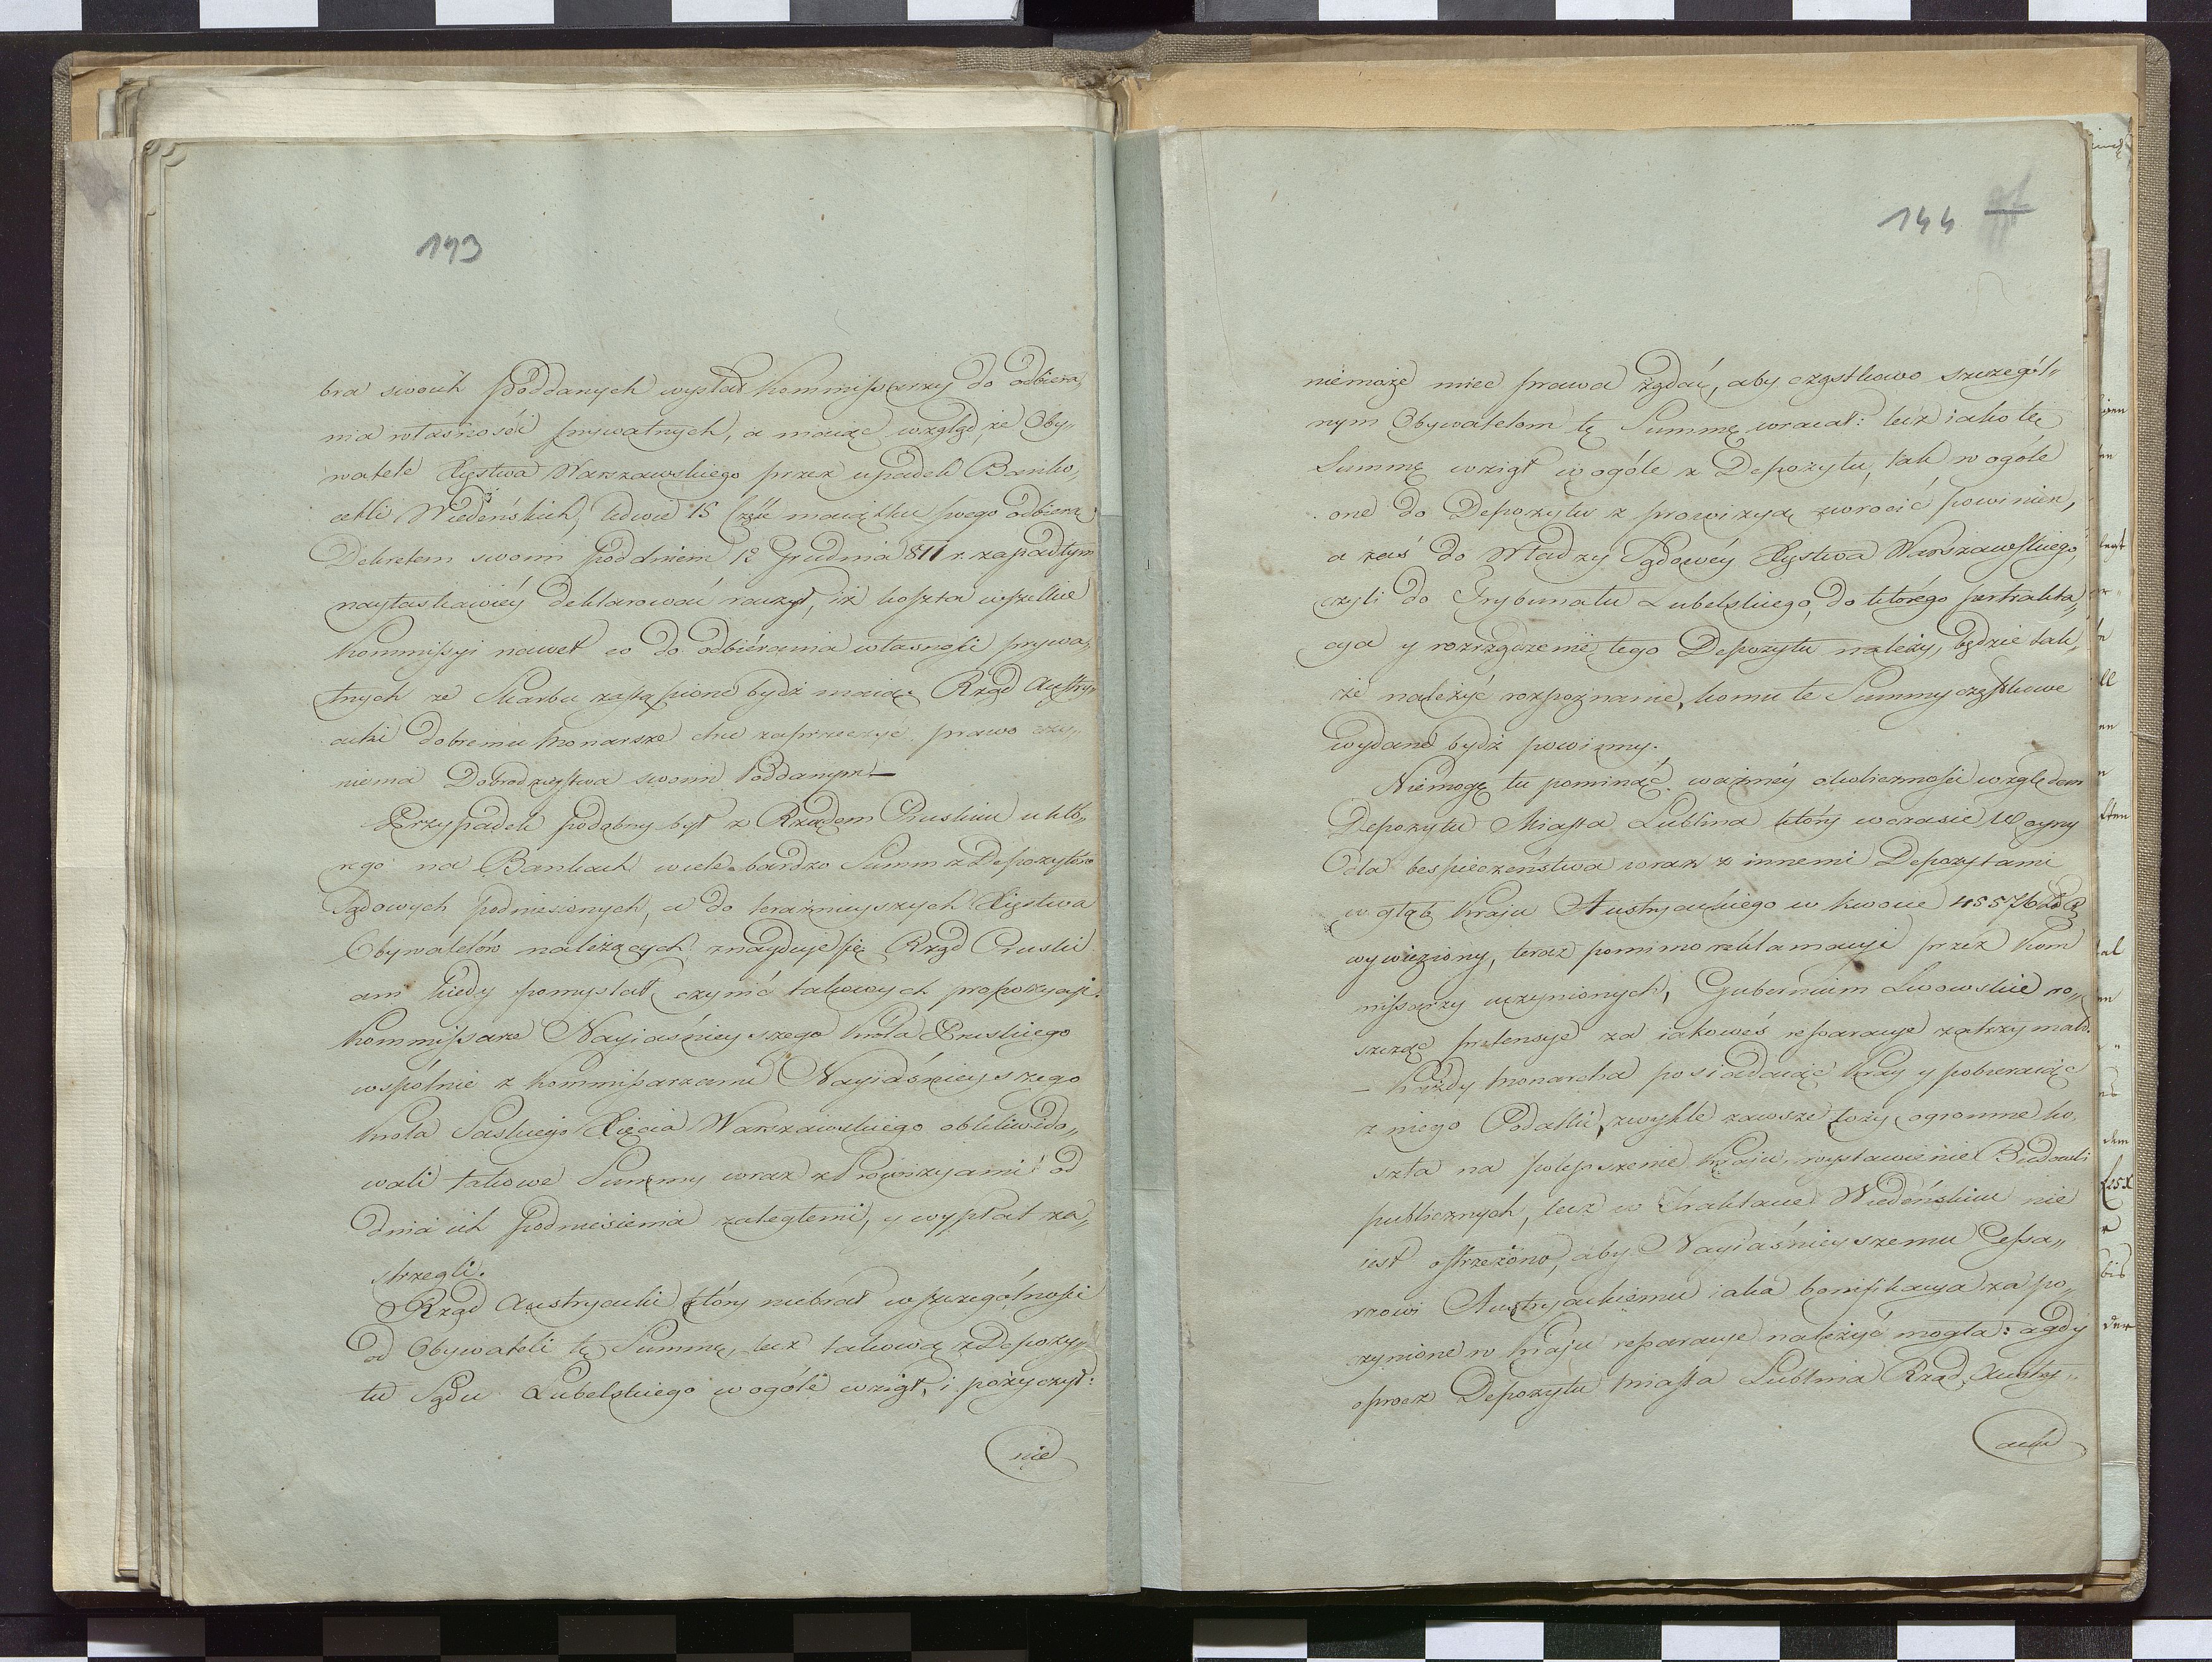 143
bra swoich Poddanych wysłał Kommissarzy do odbiera„
nia własności prywatnych, a maiąc wzgląd, że Oby„
watele Xięstwa Warszawskiego przez upadek Banko„
cetli Wiedeńskich, ledwie 15 Część maiątku swego odbiorą
Dekretem swoim pod dniem 12 Grudnia 811 r. zapadłym
nayłaskawiéy deklarować raczył, iż koszta wszelkie
Kommissyi nawet co do odbiérania własności prywa„
tnych ze Skarbu zastąpione bydź maią. Rząd Austry„
acki dobremu Monarsze chce zaprzeczyć prawo czy„
nienia Dobrodzieystwa swoim Poddanym. —
Przypadek podobny był z Rządem Pruskim u któ„
rego na Bankach wiele bardzo Summ z Depozytów
Sądowych podniesionych, a do teraźnieyszych Xięstwa
Obywatelów należących znayduje się. Rząd Pruski
ani kiedy pomyslał czynić takowych propozycyi.
Kommissarze Nayiaśnieyszego Króla Pruskiego
wspólnie z Kommissarzami Nayiaśnieyszego
Króla Saskiego Xięcia Warszawskiego oblikwido„
wali takowe Summy wraz z Prowizyami od
dnia ich podniesienia zaległemi, y wypłat za„
strzegli.
Rząd Austryacki który niebrał w szczególności
od Obywateli tę Summę, lecz takową z Depozy„
tu Sądu Lubelskiego w ogóle wziął, i pożyczył:
nie
144
niemoże mieć prawa żądać, aby cząstkowo szczegól„
nym Obywatelom tę Summę wracał: lecz iako tę
Summę wziął w ogóle z Depozytu, tak w ogóle
one do Depozytu z prowizyą zwrócić powinien,
a zaś do Władzy Sądowéy Xięstwa Warszawskiego,
czyli do Trybunału Lubelskiego, do którego pertrakta„
cya y rozrządzenie tego Depozytu należy, będzie tak„
że należyć rozpoznanie, komu te Summy cząstkowe
wydane bydź powinny.
Niemogę tu pominąć ważnéy okoliczności względem
Depozytu Miasta Lublina który w czasie Woyny
dla bespieczeństwa wraz z innemi Depozytami
w głąb Kraju Austryackiego w kwocie 45576
wywieziony, teraz pomimo reklamacyi przéz Kom
missarzy uczynionych, Gubernium Lwowskie ro„
szcząc pretensye za iakoweś reparacye zatrzymało.
— Każdy Monarcha posiadaiąc Kray y pobieraiąc
z niego Podatki, zwykle zawsze łoży ogromne ko„
szta na polepszenie Kraju, wystawienie Budowli
publicznych, lecz w Traktacie Wiedeńskim nie
iest ostrzeżono, aby Nayiaśnieyszemu Cesa„
rzowi Austryackiemu iaka bonifikacya za po„
czynione w Kraju reparacye należyć mogła: a gdy
oprocz Depozytu Miasta Lublina Rząd Austry„
acki